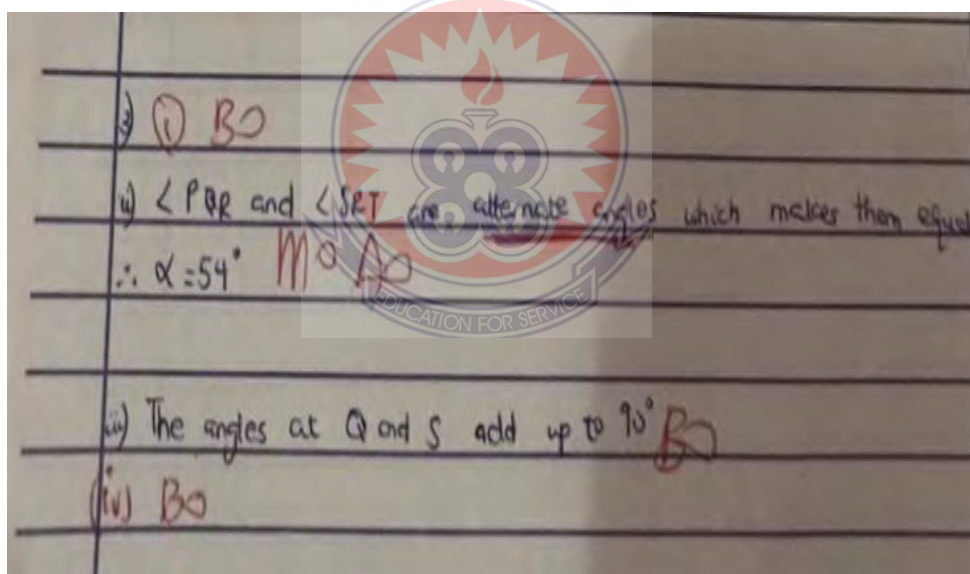 (i) B0
ii) ∠PQR and ∠SRT are alternate angles which makes them equal
∴ α = 54° M0 A0
EDUCATION FOR SERVICE
iii) The angles at Q and S add up to 90° B0
(iv) B0